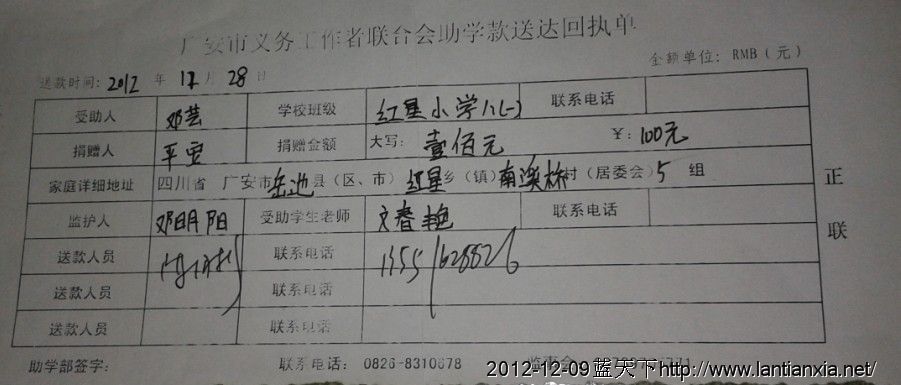 广安市义务工作者联合会助学款送达回执单
送款时间: 2012 年 12 月 28 日 金额单位: RMB (元)
受助人 邓芸 学校班级 红星小学 联系电话
捐赠人 平安 捐赠金额 大写: 壹佰元 ¥: 100元
家庭详细地址 四川省 广安市岳池县(区、市)红星乡(镇)南溪桥村(居委会)5 组
监护人 邓明阳 受助学生老师 文春艳 联系电话
送款人员 联系电话
送款人员 联系电话
送款人员 联系电话
正联
助学部签字: 联系电话: 0826-8310678
2012-12-09 蓝天下http://www.lantianxia.net/